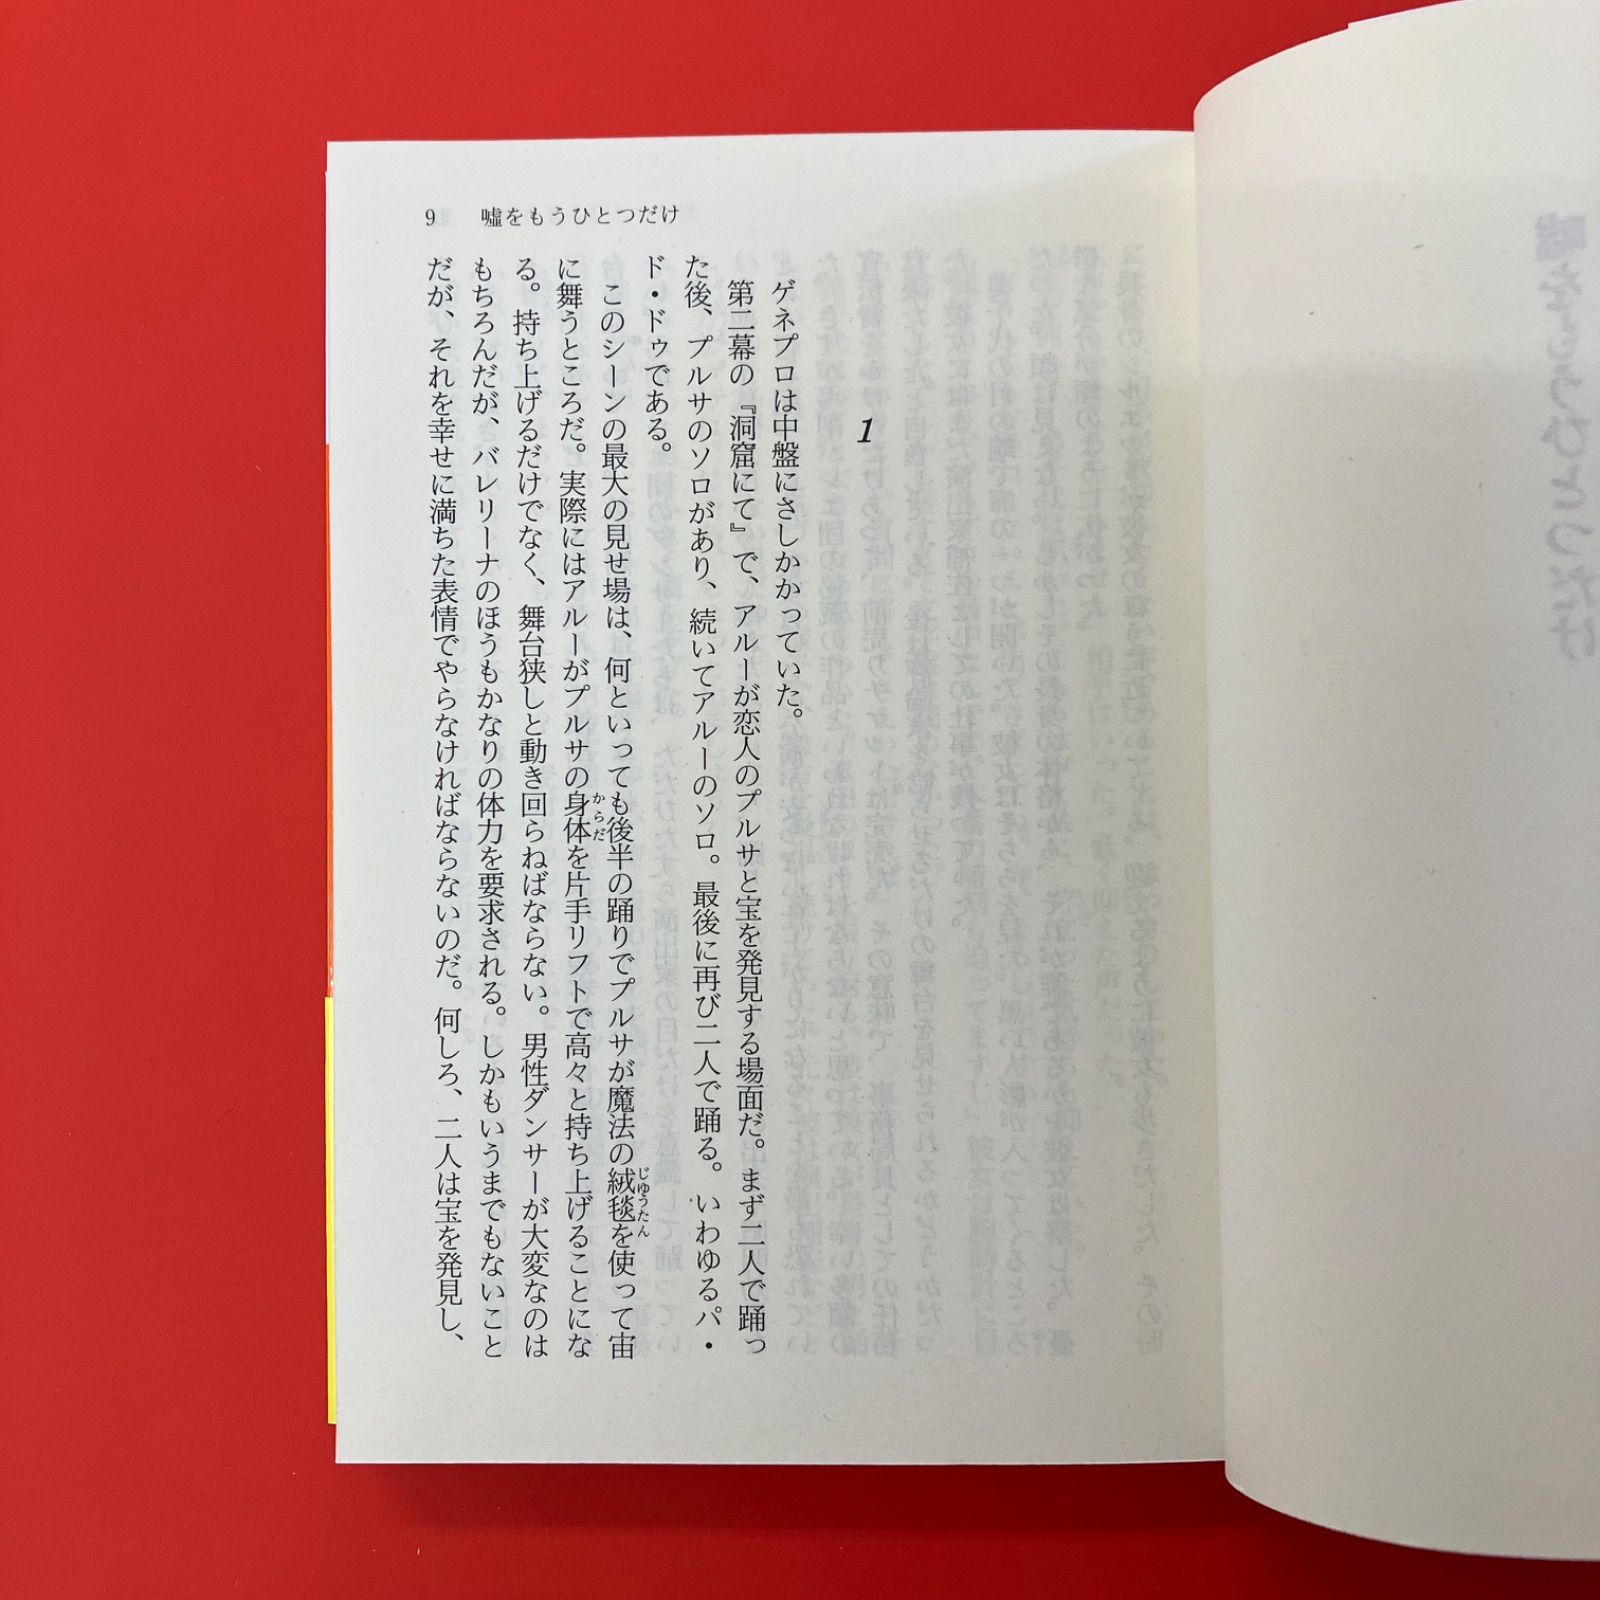 9　嘘をもうひとつだけ
1
ゲネプロは中盤にさしかかっていた。
第二幕の『洞窟にて』で、アルーが恋人のプルサと宝を発見する場面だ。まず二人で踊っ
た後、プルサのソロがあり、続いてアルーのソロ。最後に再び二人で踊る。いわゆるパ・
ド・ドゥである。
このシーンの最大の見せ場は、何といっても後半の踊りでプルサが魔法の絨毯を使って宙
じゅうたん
に舞うところだ。実際にはアルーがプルサの身体を片手リフトで高々と持ち上げることにな
からだ
る。持ち上げるだけでなく、舞台狭しと動き回らねばならない。男性ダンサーが大変なのは
もちろんだが、バレリーナのほうもかなりの体力を要求される。しかもいうまでもないこと
だが、それを幸せに満ちた表情でやらなければならないのだ。何しろ、二人は宝を発見し、
嘘をもうひとつだけ